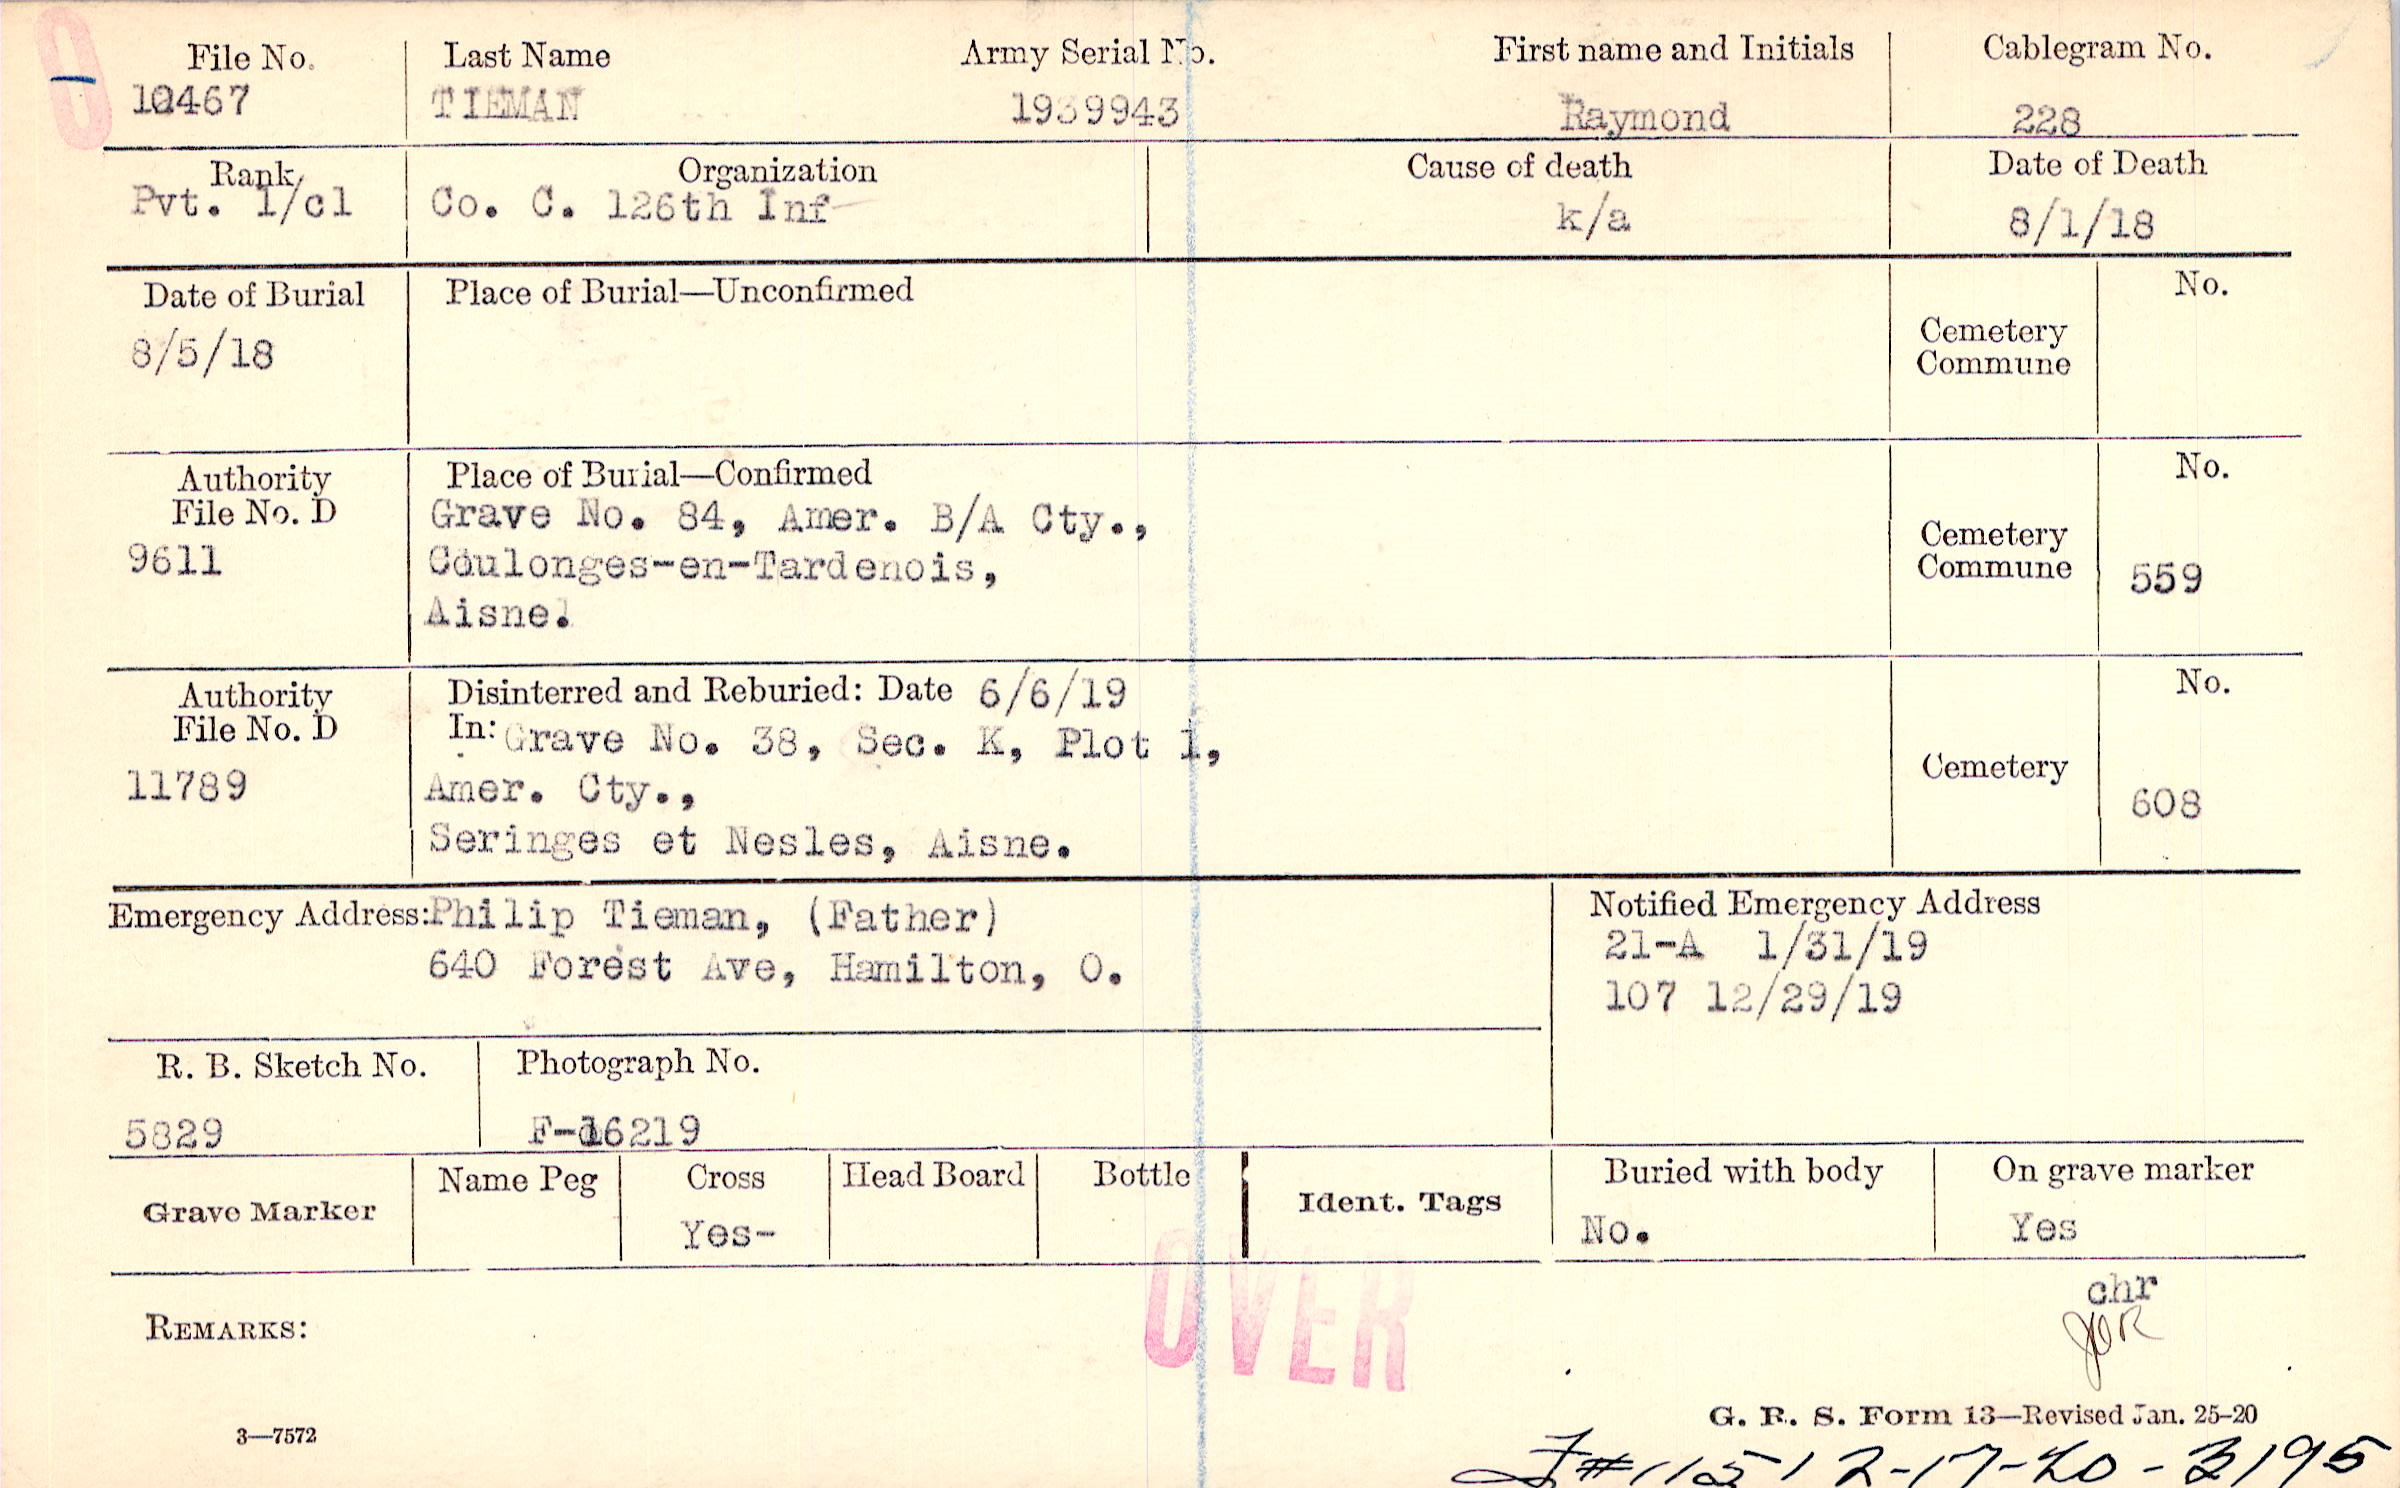 File No. Last Name Army Serial No. First name and Initials Cablegram No.
10467 TIEMAN 1939943 Raymond 228
Rank Organization Cause of death Date of Death
Pvt. 1/cl Co. C. 126th Inf k/a 8/1/18
Date of Burial Place of Burial—Unconfirmed No.
8/5/18 Cemetery
Commune
Authority Place of Burial—Confirmed No.
File No. D Grave No. 84, Amer. B/A Cty., Cemetery
9611 Coulonges-en-Tardenois, Commune 559
Aisne.
Authority Disinterred and Reburied: Date 6/6/19 No.
File No. D In: Grave No. 38, Sec. K, Plot 1, Cemetery
11789 Amer. Cty., 608
Seringes et Nesles, Aisne.
Emergency Address: Philip Tieman, (Father) Notified Emergency Address
640 Forest Ave, Hamilton, O. 21-A 1/31/19
107 12/29/19
R. B. Sketch No. Photograph No.
5829 F-16219
Grave Marker Name Peg Cross Head Board Bottle Ident. Tags Buried with body On grave marker
Yes- No. Yes
chr
JOR
REMARKS:
OVER
G. R. S. Form 13—Revised Jan. 25-20
3—7572
#115 12-17-20-3195